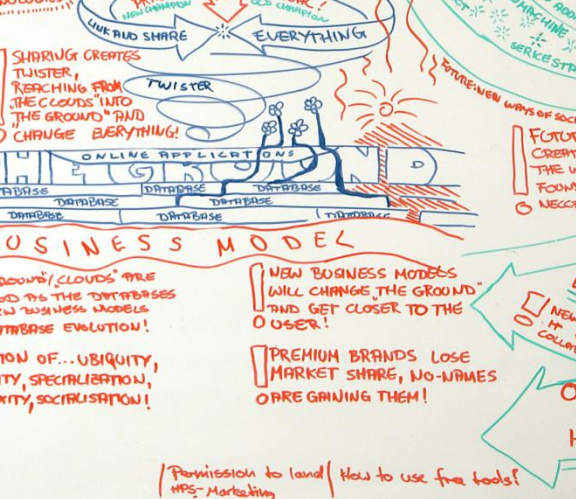 NEW CHAMPION
CHAMPION
LINK AND SHARE
EVERYTHING
SHARING CREATES
TWISTER,
REACHING FROM
„THE CLOUDS" INTO
„THE GROUND" AND
CHANGE EVERYTHING!
TWISTER
FUTURE: NEW WAYS OF SOC
MACHINE
ADD
FUTU
CREAT
THE W
FOUN
NECC
ONLINE APPLICATIONS
GROUND
TABASE
DATABASE
DATABASE
DATABASE
DATABASE
DATABASE
DATABASE
DATABASE
USINESS MODEL
ROUND"/„CLOUDS" ARE
OD AS THE DATABASES
RN BUSINESS MODELS
TABASE EVOLUTION!
ION OF... UBIQUITY,
ITY, SPECIALIZATION,
XITY, SOCIALISATION!
NEW BUSINESS MODELS
WILL CHANGE „THE GROUND"
AND GET CLOSER TO THE
USER!
PREMIUM BRANDS LOSE
MARKET SHARE, NO-NAMES
ARE GAINING THEM!
NEW
COLLA
Permission to land
HPS-Marketing
How to use free tools?